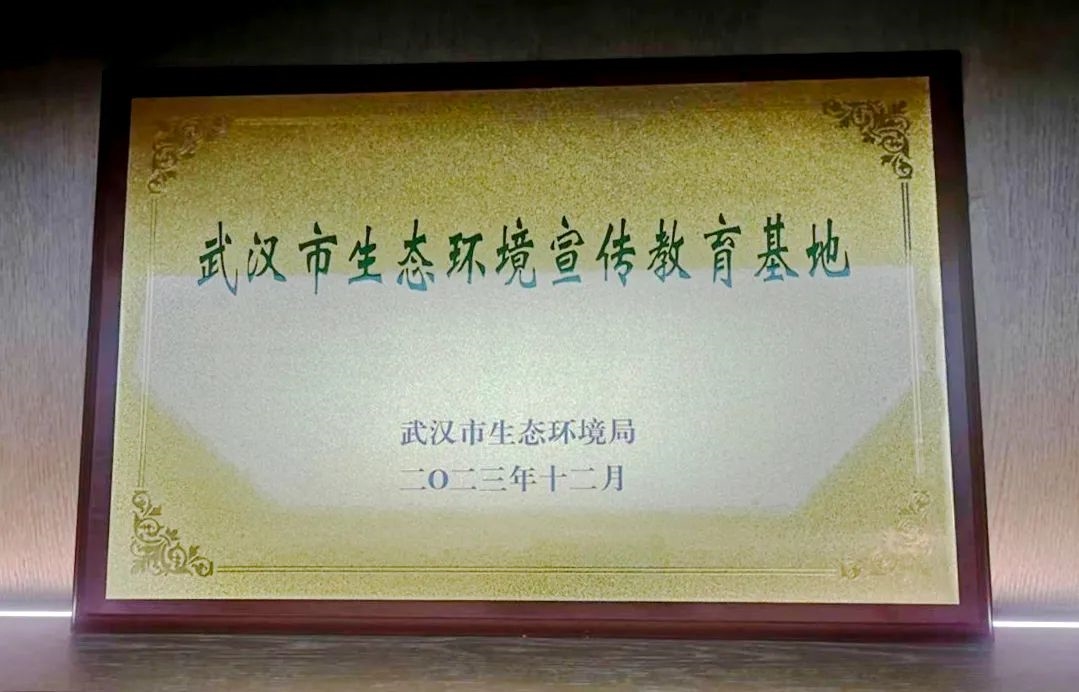 武汉市生态环境宣传教育基地
武汉市生态环境局
二〇二三年十二月